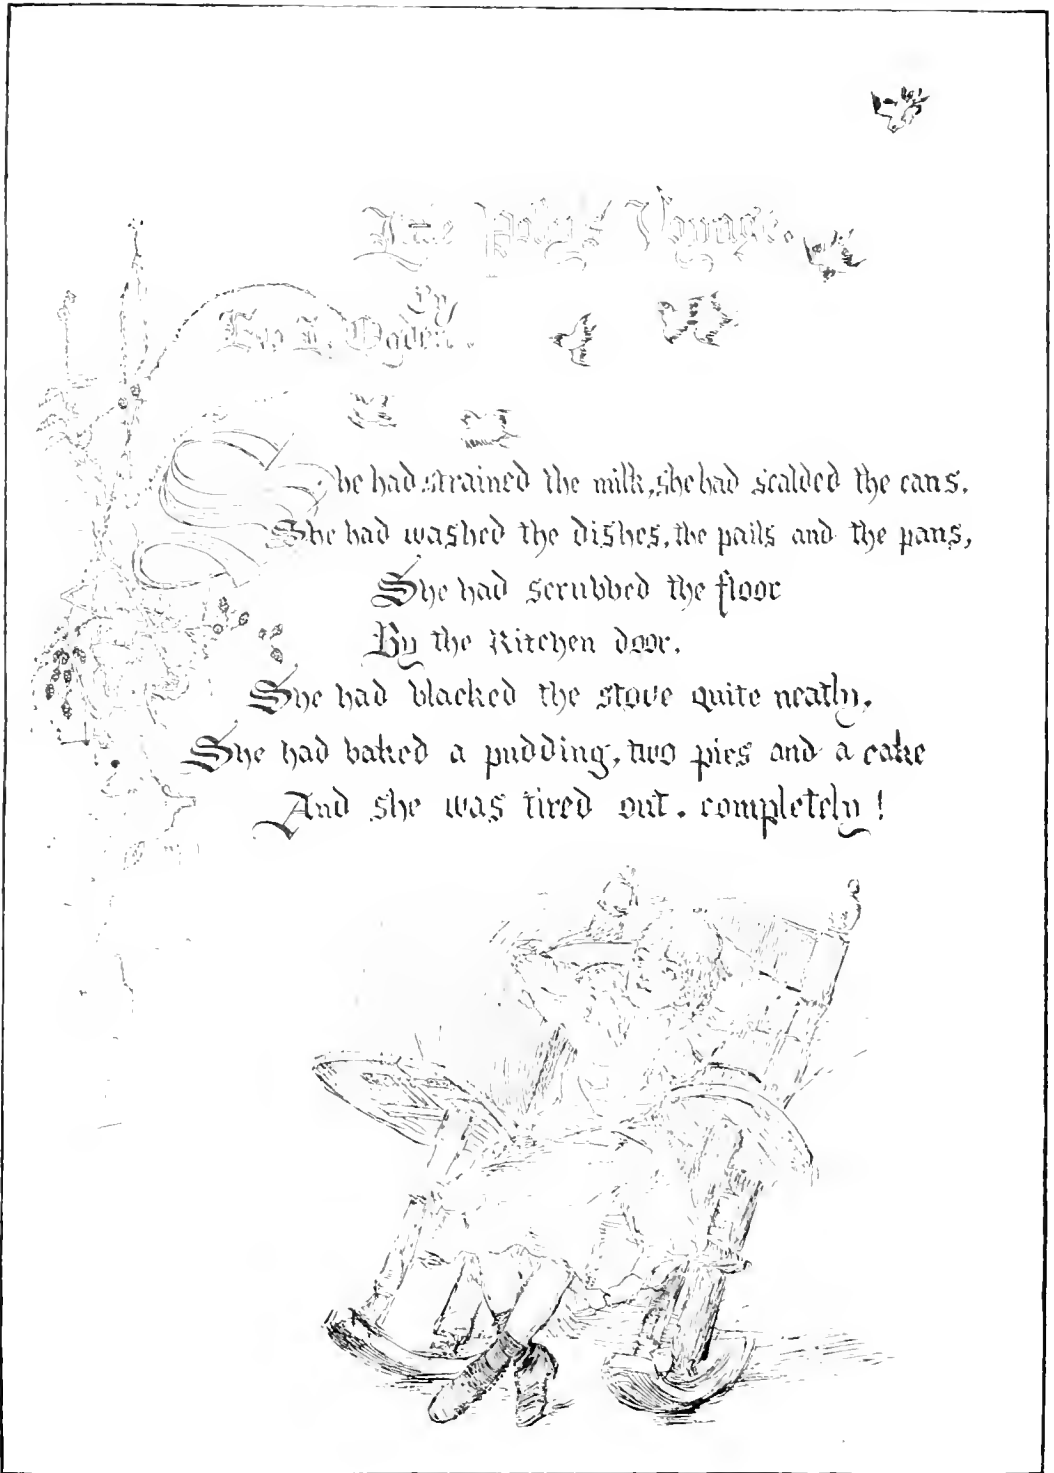 Little Polly's Voyage.
By
Eva L. Ogden.
She had strained the milk, she had scalded the cans,
She had washed the dishes, the pails and the pans,
She had scrubbed the floor
By the Kitchen door,
She had blacked the stove quite neatly,
She had baked a pudding, two pies and a cake
And she was tired out, completely!